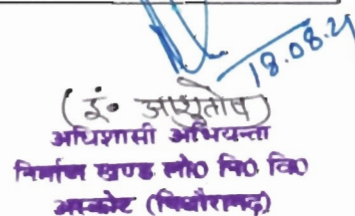 18.08.2
(इं० आशुतोष)
अधिशासी अभियन्ता
निर्माण खण्ड लो० नि० वि०
अस्कोट (पिथौरागढ़)